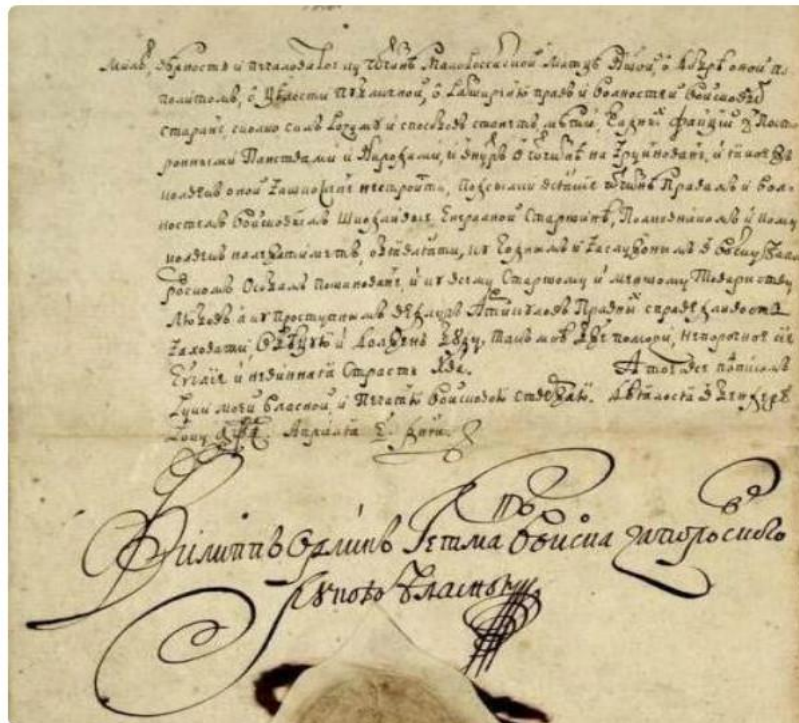 милъ, вѣрность и печаловитое ку отчизнѣ Малороссійской матцѣ нашой, о добрѣ оной по
политомъ, о цѣлости публичной, о разширеню правъ и волностей войсковыхъ
старане, сколко силъ, розуму и способовъ станетъ, мѣти, жадныхъ факцій з посто
ронными панствами и народами, и внутръ в отчизнѣ на зруйноване, и якое жъ
колвекъ оной зашкожене не строити, подсылки всякіе отчизнѣ, правамъ и вол
ностямъ войсковымъ шкодливые Енералной Старшинѣ, Полковникомъ и кому
колвекъ належатиметъ, обявляти, ку годнымъ и заслужонымъ в войску Запо
розкомъ особамъ пошановане, и ку всему Старшому и меншому Товариству
любовъ, а ку проступнымъ ведлугъ Артикуловъ Правныхъ справедливость
заховати, обѣцую и долженъ буду, такъ мнѣ Боже помози, непорочное сіе
Еуліе и невинная Страсть Хва. А тое все подписомъ
руки моей власной, и печатю войсковою ствержаю. Дѣялося в Бендерѣ
року ҂аѱі. Априлія е. дня.
Филиппъ Орликъ Гетманъ Войска Запорозского
рукою власною